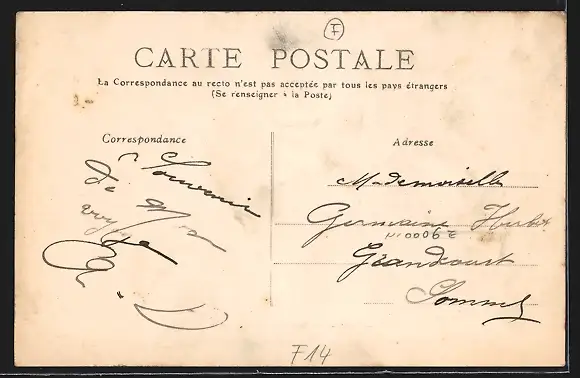 F
CARTE POSTALE
La Correspondance au recto n'est pas acceptée par tous les pays étrangers
(Se renseigner à la Poste)
Correspondance
Souvenir
de
voyage
Adresse
Mademoiselle
Germaine
Grandcourt
Somme
F14